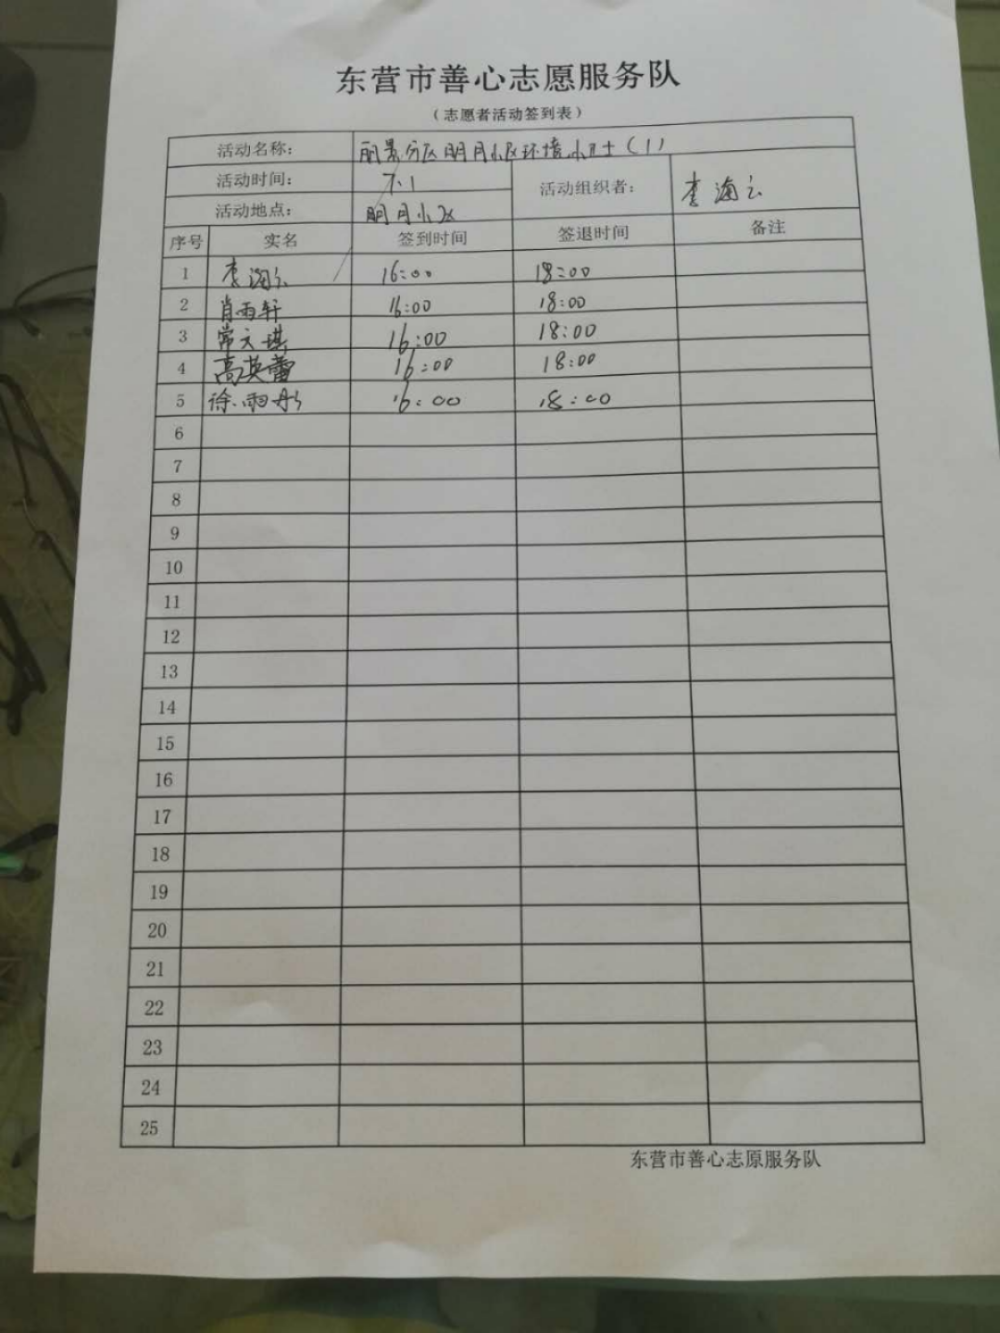 东营市善心志愿服务队
（志愿者活动签到表）
活动名称： 丽景分区明月小区环境小卫士（1）
活动时间： 7.1 活动组织者： 李海云
活动地点： 明月小区
序号 实名 签到时间 签退时间 备注
1 李海云 16:00 18:00
2 肖雨轩 16:00 18:00
3 常文琪 16:00 18:00
4 高英蕾 16:00 18:00
5 徐雨彤 16:00 18:00
6
7
8
9
10
11
12
13
14
15
16
17
18
19
20
21
22
23
24
25
东营市善心志原服务队